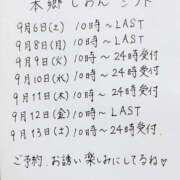 本郷しおん シフト
9月6日(土) 10時~LAST
9月8日(月) 10時~LAST
9月9日(火) 10時~24時受付
9月10日(水) 10時~24時受付
9月11日(木) 10時~24時受付
9月12日(金) 10時~LAST
9月13日(土) 10時~24時受付
ご予約、お誘い楽しみにしてるね♡